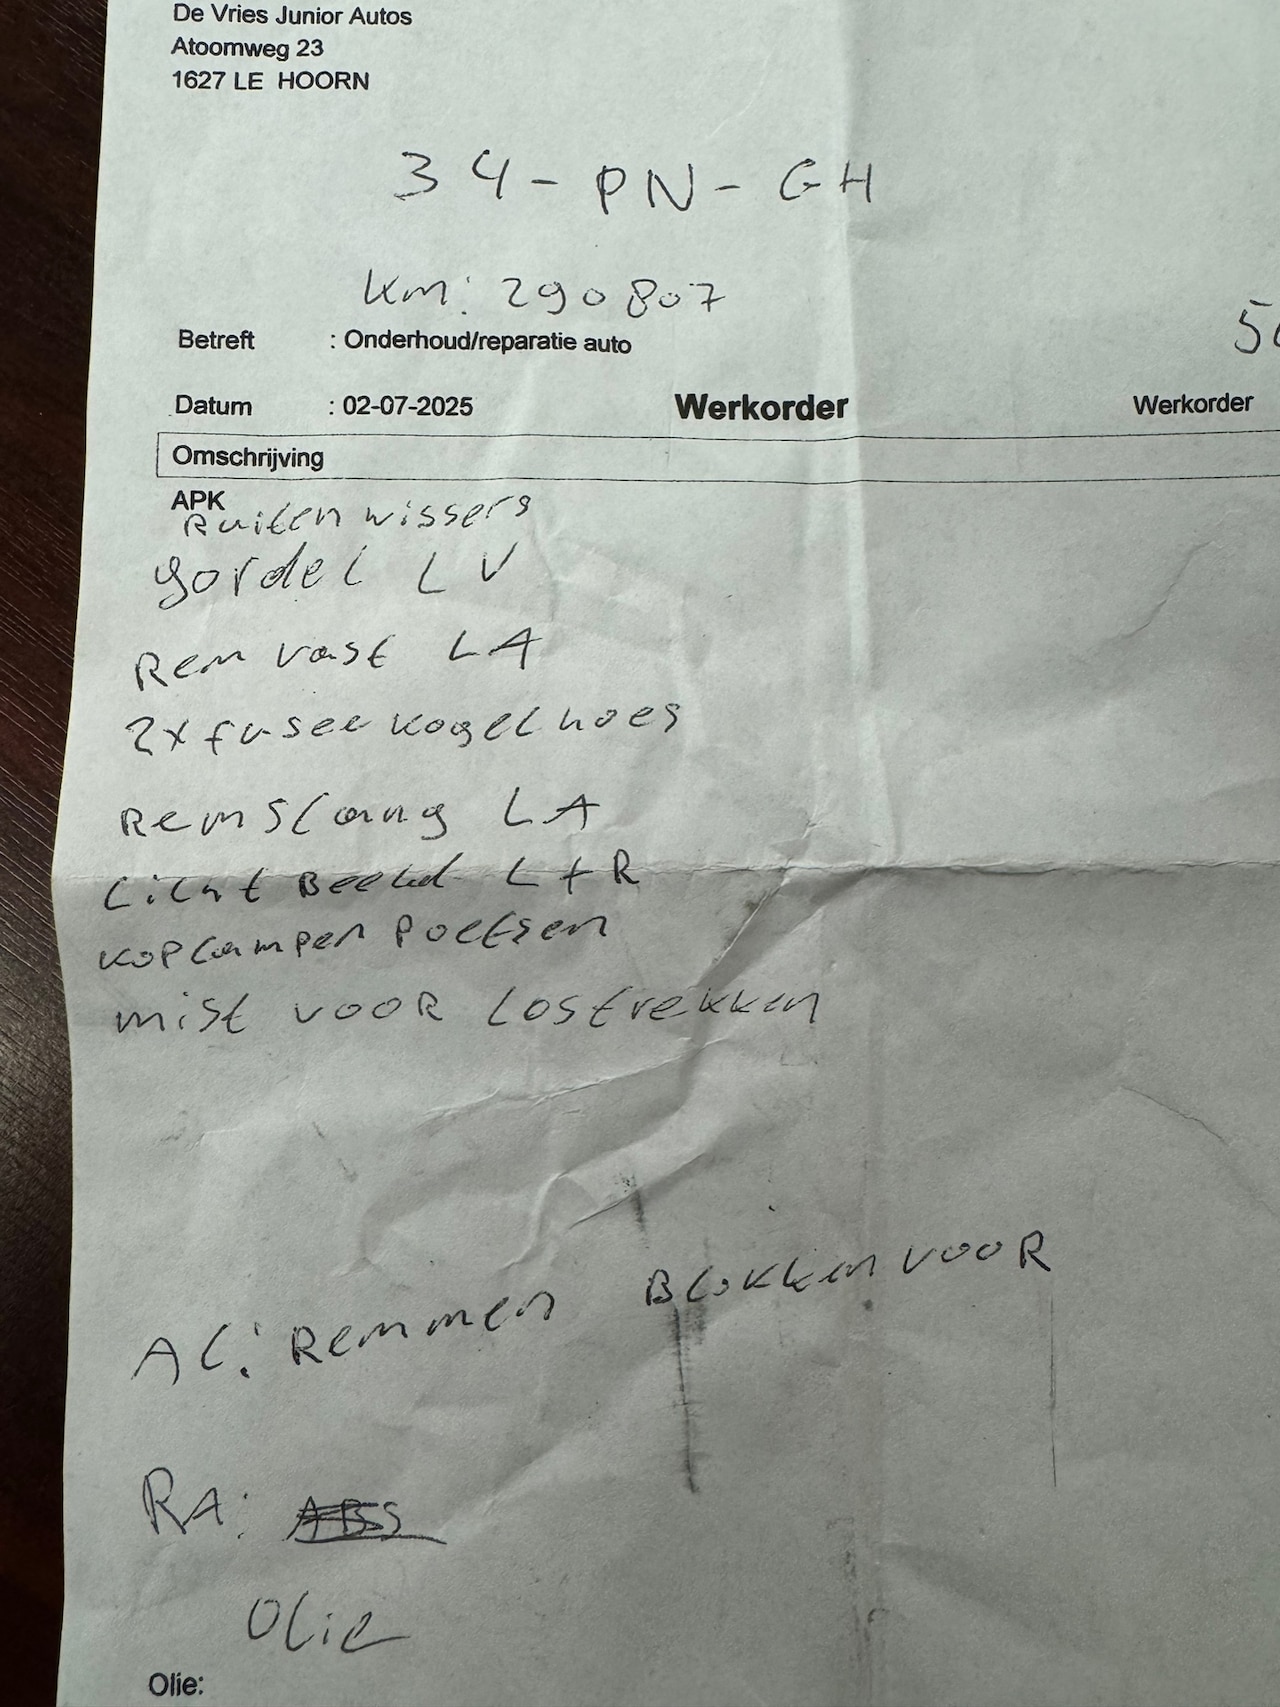 De Vries Junior Autos
Atoomweg 23
1627 LE HOORN
34-PN-GH
km: 290807
Betreft : Onderhoud/reparatie auto
Datum : 02-07-2025 Werkorder Werkorder
Omschrijving
APK
Ruiten wissers
gordel LV
Rem vast LA
2x fusee kogel hoes
Remslang LA
Licht Beeld L+R
Koplampen Poetsen
mist voor lostrekken
AC: Remmen Blokken voor
RA: ABS
Olie
Olie: